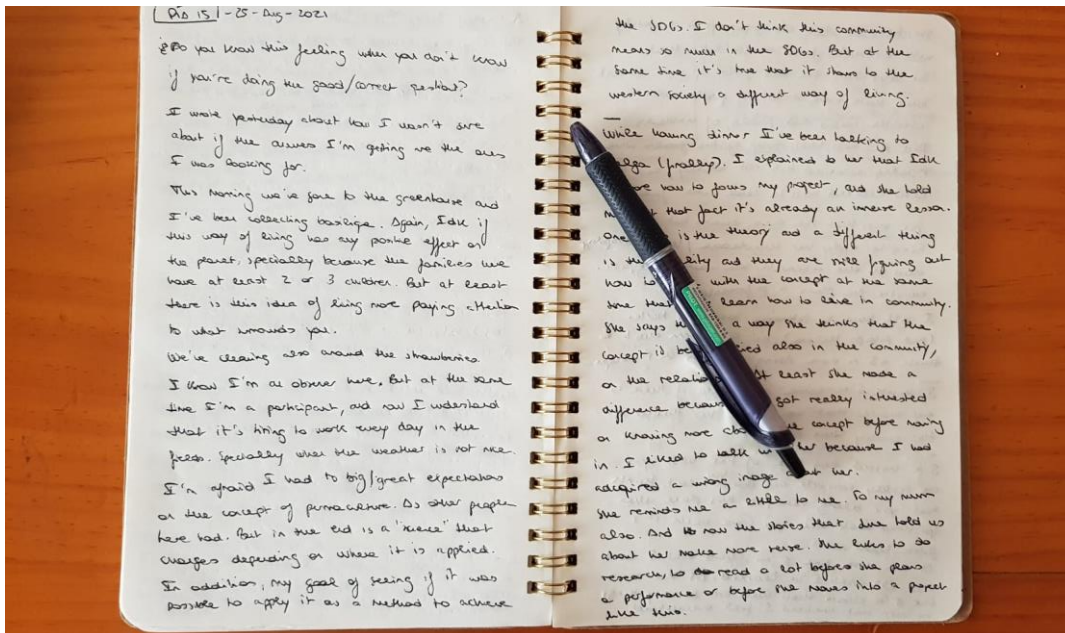 DÍA 15 - 25 - Aug - 2021
¿Do you know this feeling when you don't know
if you're doing the good/correct question?
I wrote yesterday about how I wasn't sure
about if the answers I'm getting are the ones
I was looking for.
This morning we've gone to the greenhouse and
I've been collecting basilique. Again, Idk if
this way of living has any positive effect on
the planet, specially because the families here
have at least 2 or 3 children. But at least
there is this idea of living more paying attention
to what surrounds you.
We've cleaning also around the strawberries.
I know I'm an observer here. But at the same
time I'm a participant, and now I understand
that it's tiring to work every day in the
fields. Specially when the weather is not nice.
I'm afraid I had to big/great expectations
on the concept of permaculture. As other people
here had. But in the end is a "science" that
changes depending on where it is applied.
In addition, my goal of seeing if it was
possible to apply it as a method to achieve
the SDGs. I don't think this community
means so much in the SDGs. But at the
same time it's true that it shows to the
western society a different way of living.
While having dinner I've been talking to
(finally). I explained to her that Idk
how to focus my project, and she told
that fact it's already an immense lesson.
One is the theory and a different thing
is and they are still figuring out
how to with the concept at the same
time that learn how to live in community.
She says a way she thinks that the
concept is also in the community,
on the At least she made a
difference got really interested
on knowing more concept before moving
in. I liked to talk because I had
adcquired a wrong image her.
She reminds me a little to me. To my mum
also. And now the stories that June told us
about her make more sense. She likes to do
research, to read a lot before she plans
a performance or before she moves into a project
like this.